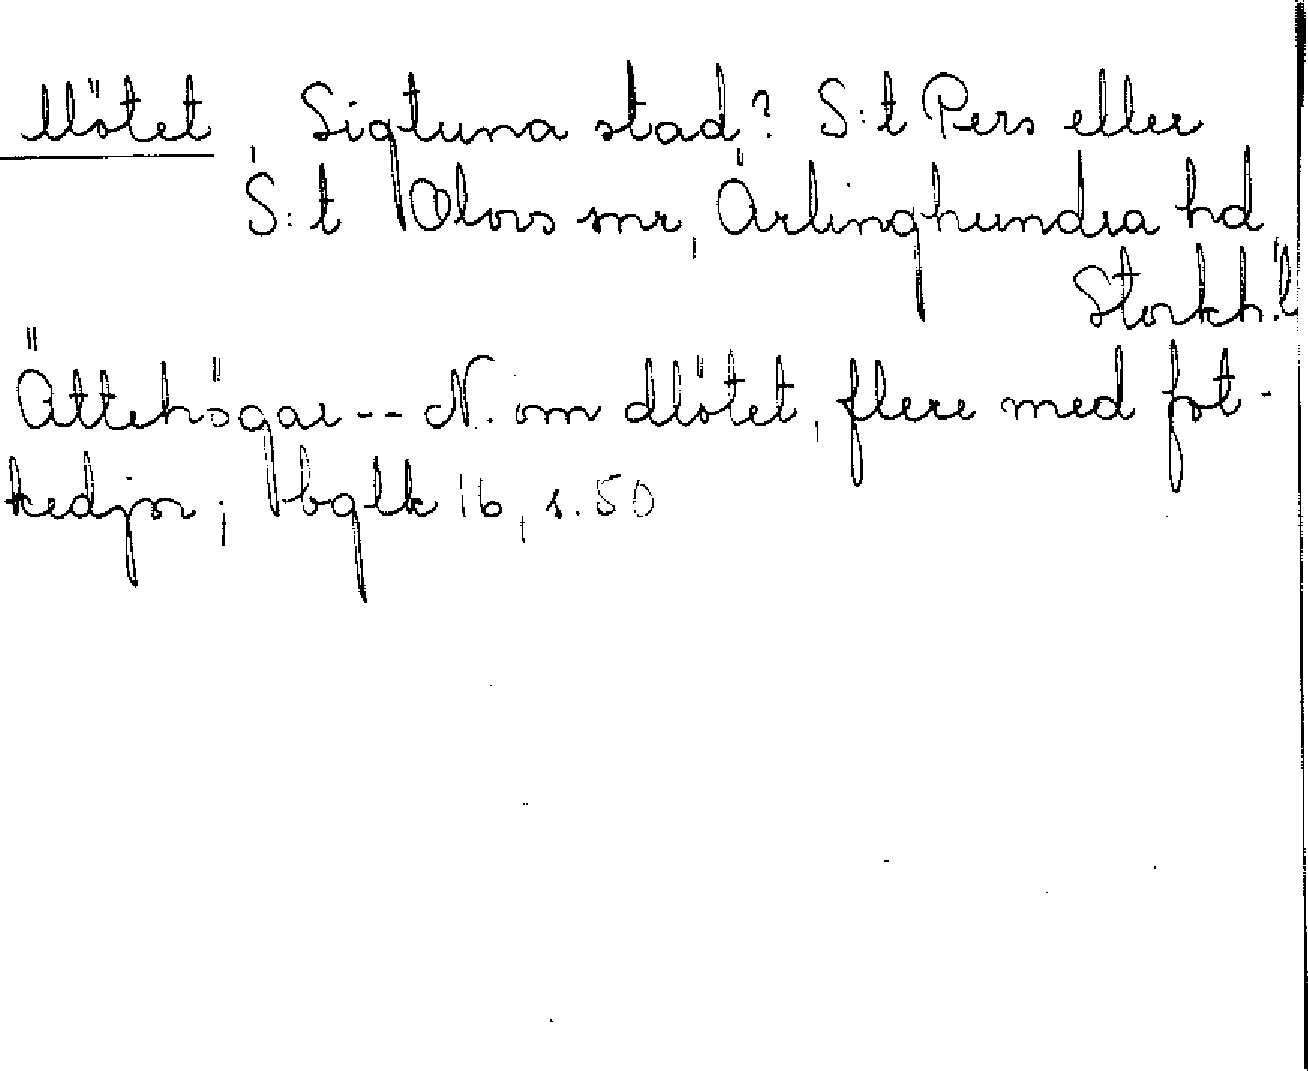 Mötet Sigtuna stad? S:t Pers eller
S:t Olovs snr, Ärlinghundra hd,
Stockh.l
Ättehögar -- N. om Mötet, flere med fot-
kedjor; Ubglk 16, s. 50